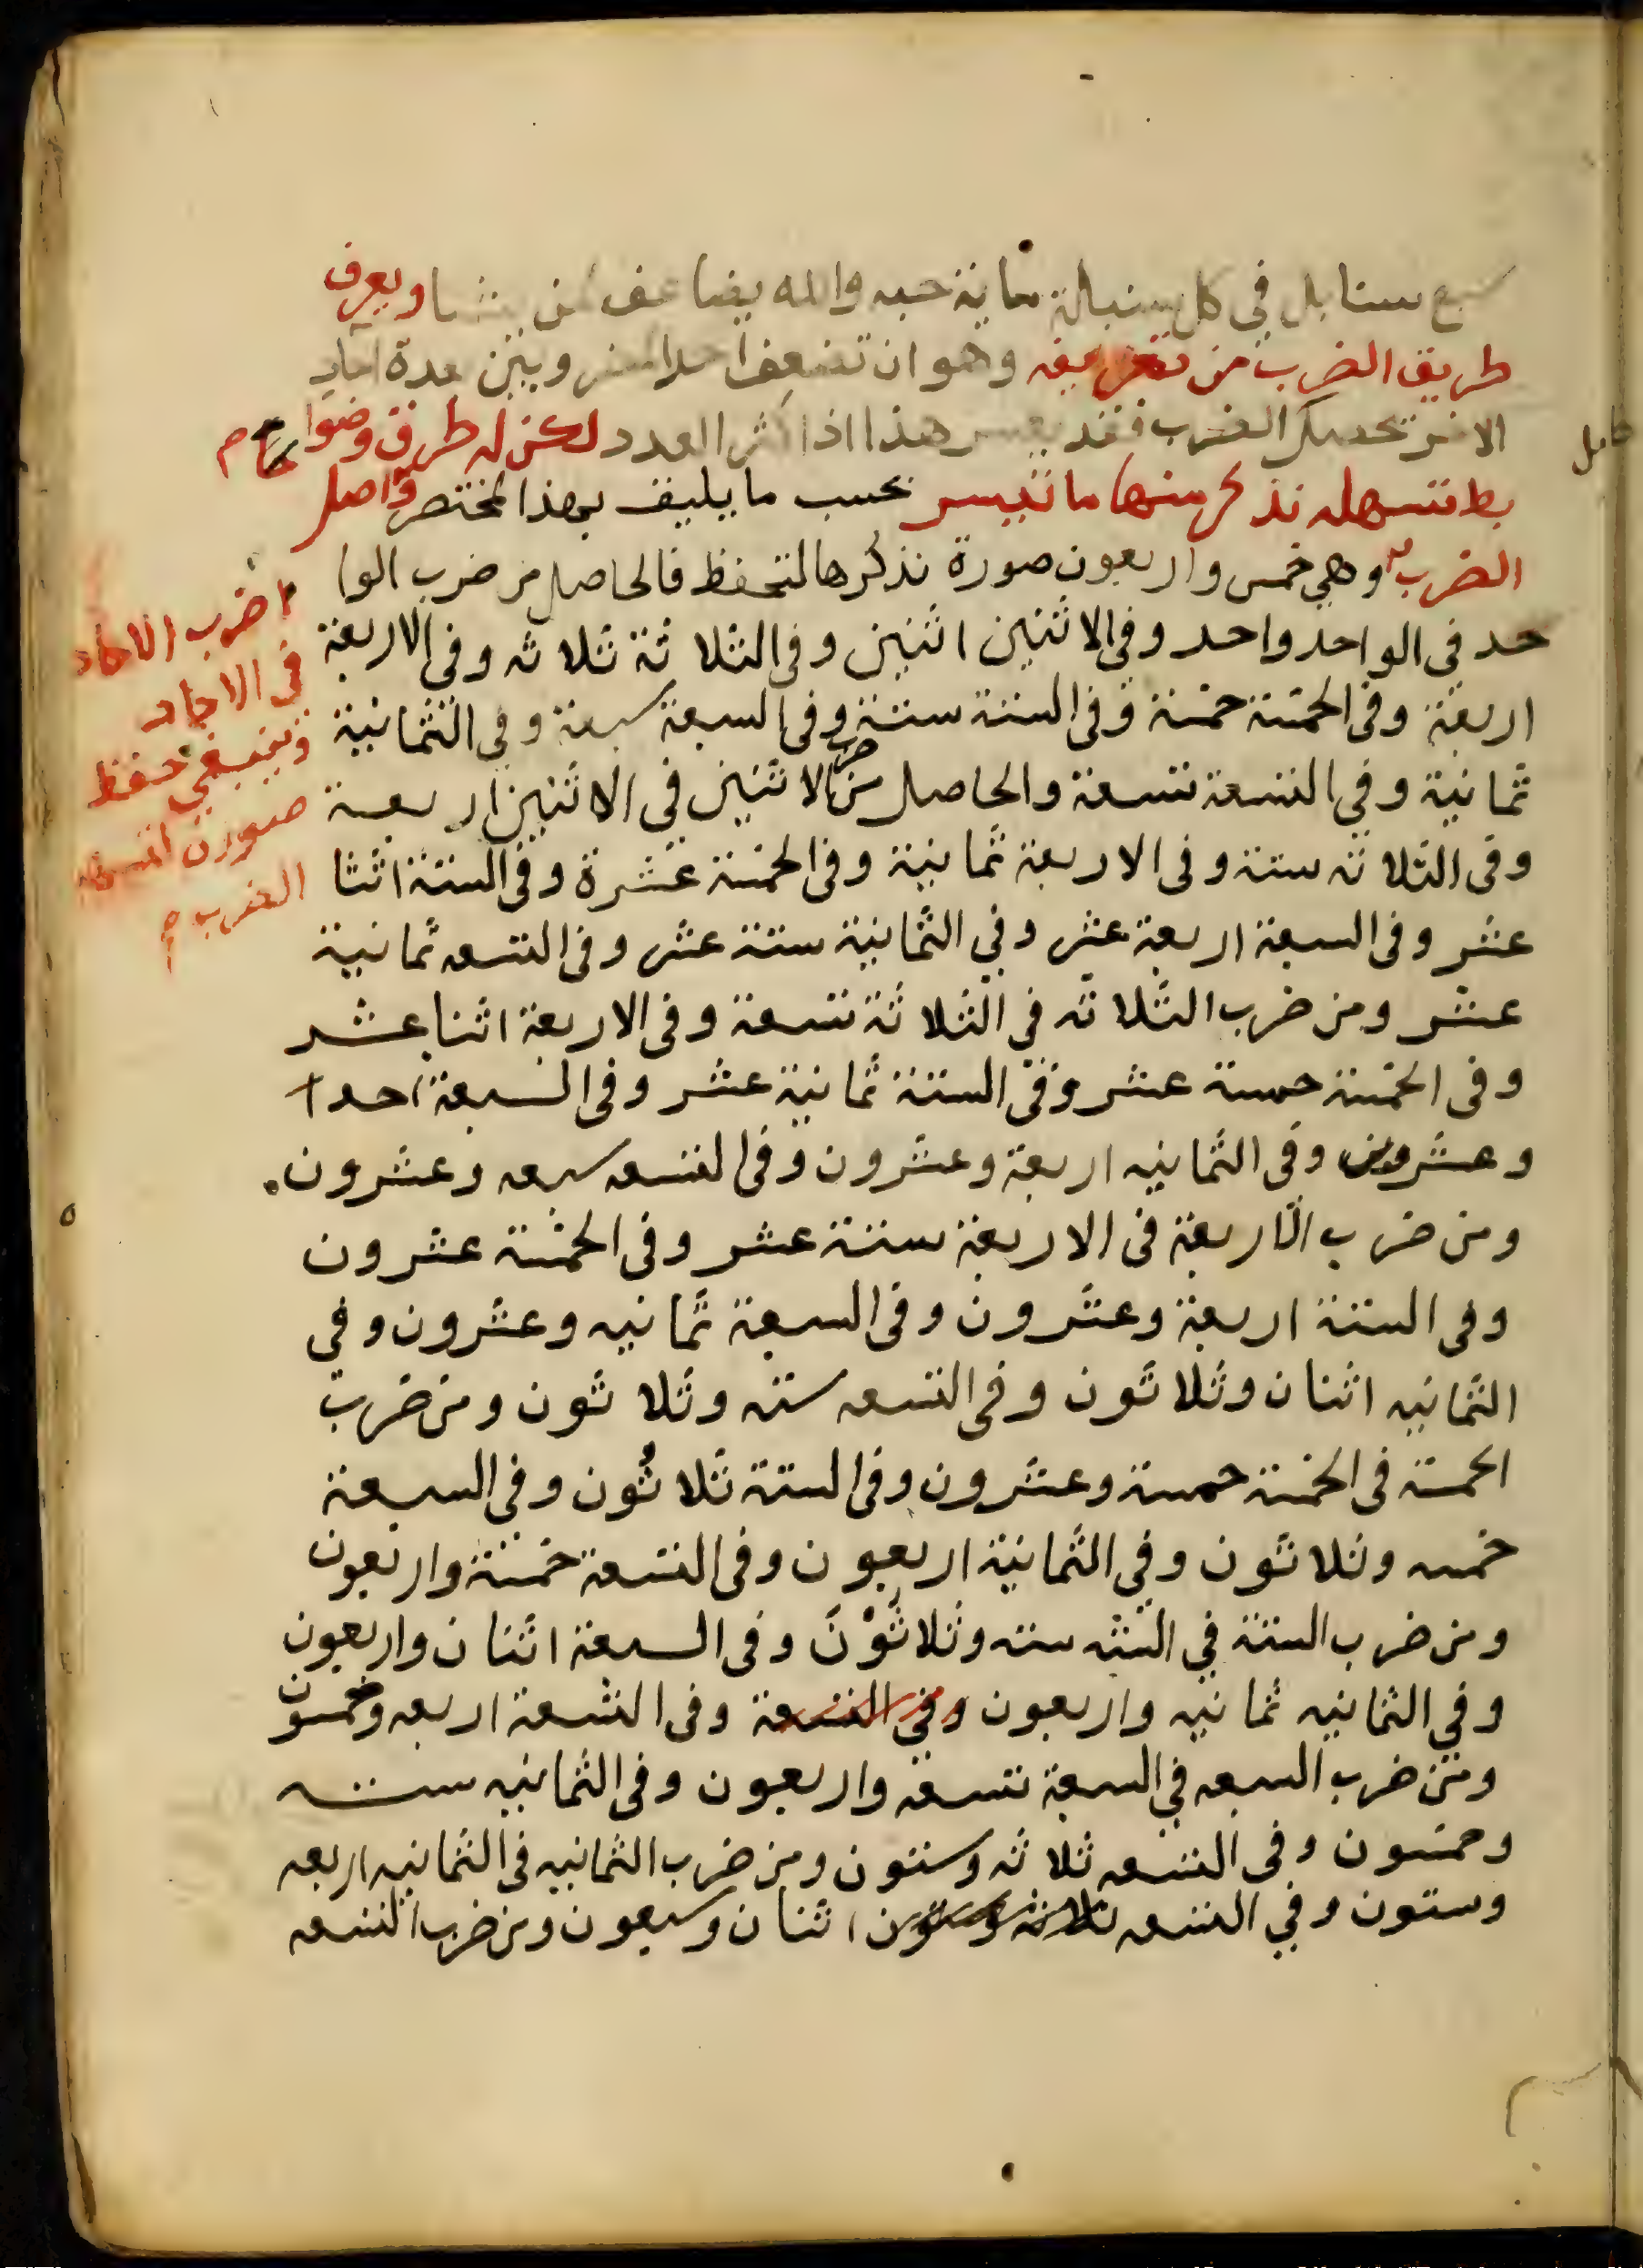 سبع سنابل في كل سنبلة مائة حبه والله يضاعف لمن يشا ويعرف
طريق الضرب من تعريفه وهو ان تضعف احد المضروبين عدة آحاد
الاخر يحصل الضرب فقد يعسر هذا اذا كثر العدد لكن له طرق وضوا
بط تسهله نذكر منها ما تيسر بحسب ما يليق بهذا المختصر واصل
الضرب وهي خمس واربعون صورة نذكرها لتحفظ فالحاصل من ضرب الوا
حد في الواحد واحد وفي الاثنين اثنين وفي الثلاثة ثلاثه وفي الاربعة
اربعة وفي الخمسة خمسة وفي الستة ستة وفي السبعة سبعة وفي الثمانية
ثمانية وفي التسعة تسعة والحاصل من ضرب الاثنين في الاثنين اربعة
وفي الثلاثه ستة وفي الاربعة ثمانية وفي الخمسة عشرة وفي الستة اثنا
عشر وفي السبعة اربعة عشر وفي الثمانية ستة عشر وفي التسعه ثمانية
عشر ومن ضرب الثلاثه في الثلاثة تسعة وفي الاربعة اثنا عشر
وفي الخمسة خمسة عشر وفي الستة ثمانية عشر وفي السبعة احدا
وعشرون وفي الثمانيه اربعة وعشرون وفي التسعه سبعه وعشرون
ومن ضرب الاربعة في الاربعة ستة عشر وفي الخمسة عشرون
وفي الستة اربعة وعشرون وفي السبعة ثمانيه وعشرون وفي
الثمانيه اثنان وثلاثون وفي التسعه سته وثلاثون ومن ضرب
الخمسة في الخمسة خمسة وعشرون وفي الستة ثلاثون وفي السبعة
خمسه وثلاثون وفي الثمانية اربعون وفي التسعة خمسة واربعون
ومن ضرب الستة في الستة سته وثلاثون وفي السبعة اثنان واربعون
وفي الثمانيه ثمانيه واربعون وفي التسعة وفي التسعة اربعه وخمسون
ومن ضرب السبعه في السبعة تسعة واربعون وفي الثمانيه سته
وخمسون وفي التسعه ثلاثه وستون ومن ضرب الثمانيه في الثمانيه اربعه
وستون وفي التسعه ثلاثه وستون اثنان وسبعون ومن ضرب التسعه
ضرب الاحاد
في الاحاد
وينبغي حفظ
صورة
الضرب